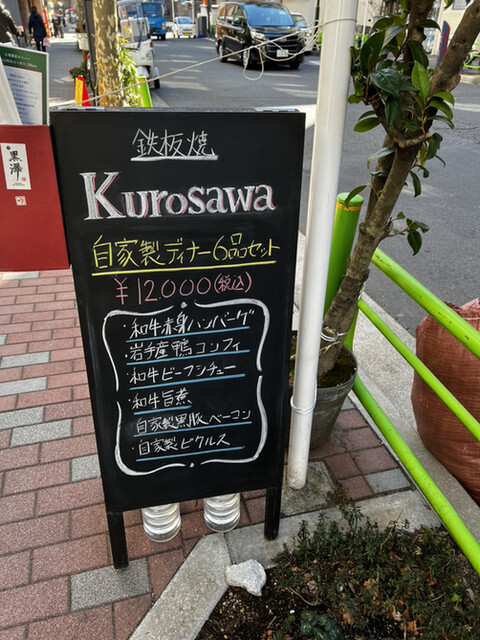 鉄板焼
Kurosawa
自家製ディナー6品セット
¥12000(税込)
・和牛赤身ハンバーグ
・岩手産鴨コンフィ
・和牛ビーフシチュー
・和牛旨煮
・自家製黒豚ベーコン
・自家製ピクルス
黒澤